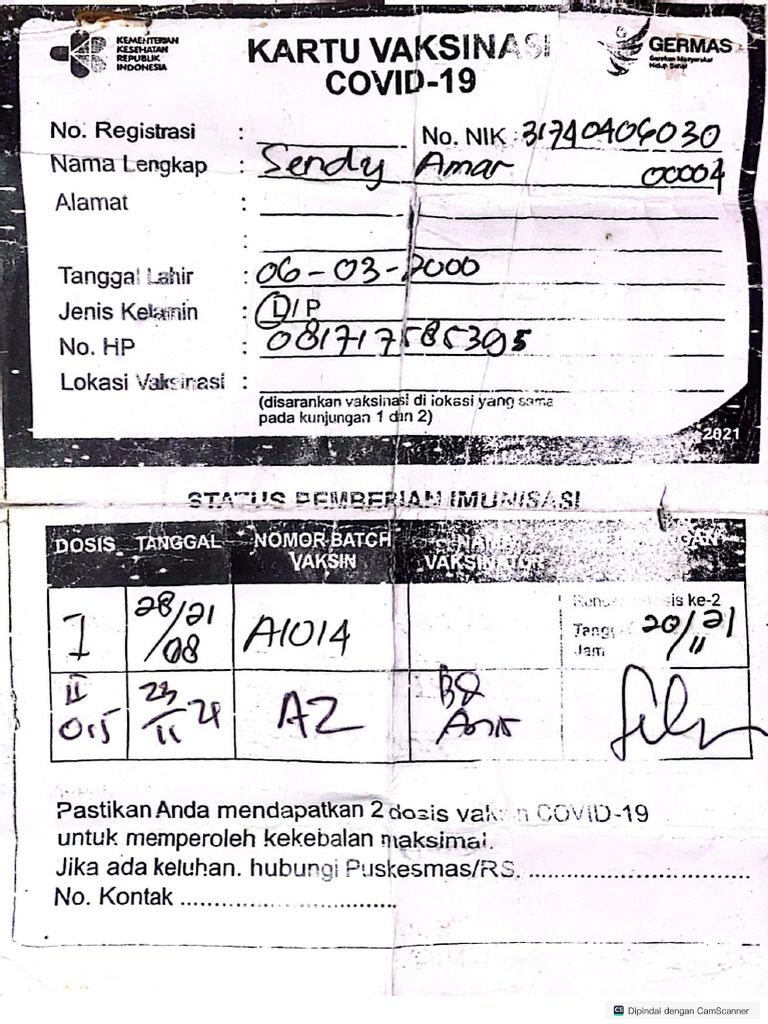 KEMENTERIAN
KESEHATAN
REPUBLIK
INDONESIA
KARTU VAKSINASI
COVID-19
GERMAS
Gerakan Masyarakat
Hidup Sehat
No. Registrasi : No. NIK : 31740406030
Nama Lengkap : Sendy Amar 00004
Alamat :
:
Tanggal Lahir : 06-03-2000
Jenis Kelamin : L/P
No. HP : 081717585395
Lokasi Vaksinasi :
(disarankan vaksinasi di lokasi yang sama
pada kunjungan 1 dan 2)
2021
STATUS PEMBERIAN IMUNISASI
DOSIS TANGGAL NOMOR BATCH VAKSIN NAMA VAKSINATOR
I 28/21 /08 A1014 dosis ke-2
Tangg 20/21 /11
Jam
II 0,5 23/11 21 AZ
Pastikan Anda mendapatkan 2 dosis vaksin COVID-19
untuk memperoleh kekebalan maksimal.
Jika ada keluhan. hubungi Puskesmas/RS. ................................
No. Kontak ................................
CS Dipindai dengan CamScanner